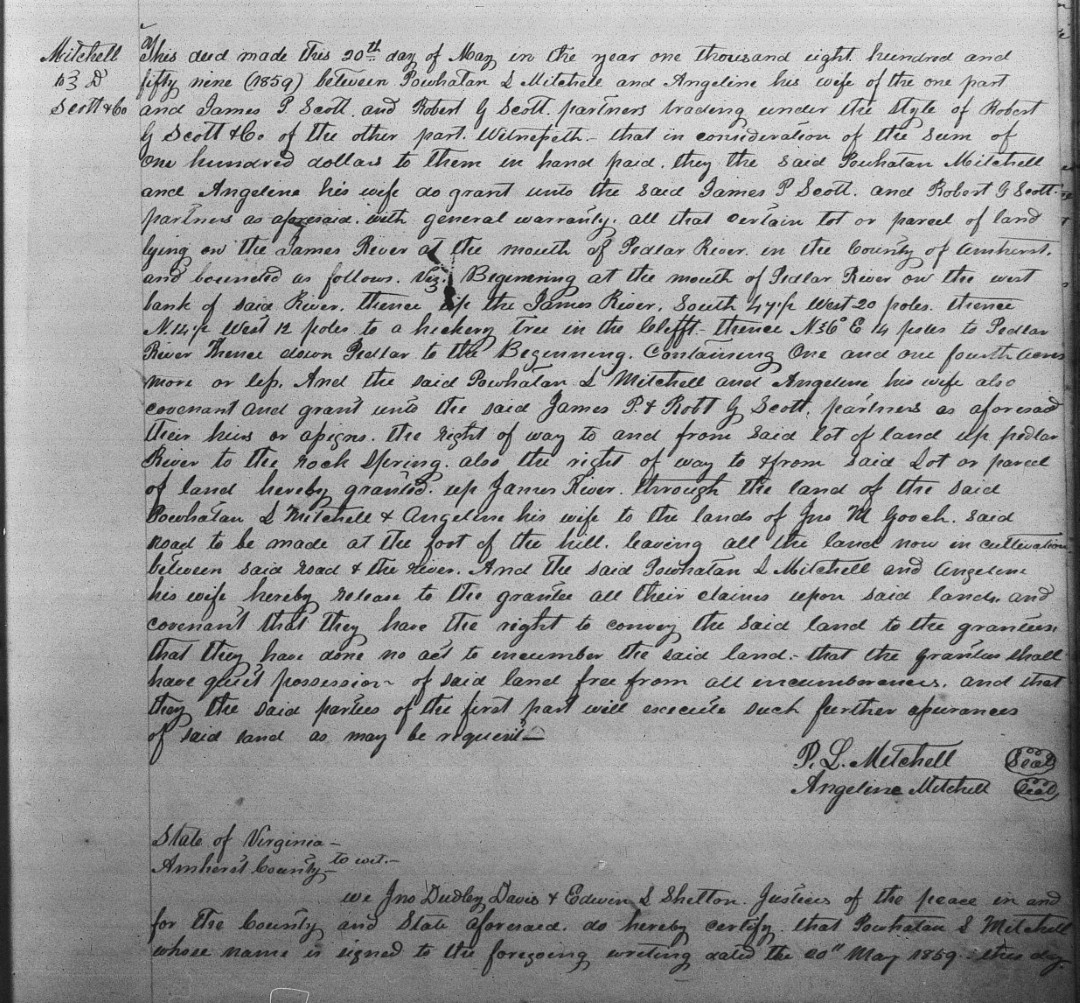 Mitchell
to } D
Scott & Co
This deed made this 20th day of May in the year one thousand eight hundred and
fifty nine (1859) between Powhatan L Mitchell and Angeline his wife of the one part
and James P. Scott. and Robert G Scott. partners trading under the style of Robert
G Scott & Co. of the other part. Witnesseth - that in consideration of the sum of
One hundred dollars to them in hand paid. they the said Powhatan Mitchell
and Angeline his wife do grant unto the said James P Scott. and Robert G Scott.
partners as aforesaid. with general warranty. all that certain lot or parcel of land
lying on the James River at the mouth of Pedlar River. in the County of Amherst.
and bounded as follows. Viz. Beginning at the mouth of Pedlar River on the west
bank of said River. thence up the James River. South 47½ West 20 poles. thence
N. 14½ West 12 poles to a hickory tree in the Clifft - thence N36° E 14 poles to Pedlar
River Thence down Pedlar to the Beginning. Containing One and one fourth acres
more or less. And the said Powhatan L Mitchell and Angeline his wife also
covenant and grant unto the said James P. & Robt G Scott. partners as aforesaid
their heirs or assigns. the right of way to and from said lot of land up pedlar
River to the rock Spring. also the right of way to & from said Lot or parcel
of land hereby granted. up James River. through the land of the said
Powhatan L Mitchell & Angeline his wife to the lands of Jno M Gooch. said
road to be made at the foot of the hill. leaving all the land now in cultivation
between said road & the River. And the said Powhatan L Mitchell and Angeline
his wife hereby release to the grantee all their claims upon said lands. and
covenant that they have the right to convey the said land to the grantees
that they have done no act to incumber the said land. - that the grantees shall
have quiet possession - of said land free from all incumberances. and that
they the said parties of the first part will execute such further assurances
of said land as may be requisit -
P. L. Mitchell (Seal)
Angeline Mitchell (Seal)
State of Virginia -
Amherst County - to wit. -
we Jno Dudley Davis & Edwin S Shelton. Justices of the peace in and
for the County and State aforesaid. do hereby certify that Powhatan L Mitchell
whose name is signed to the foregoing writing dated the 20th May 1859. this day